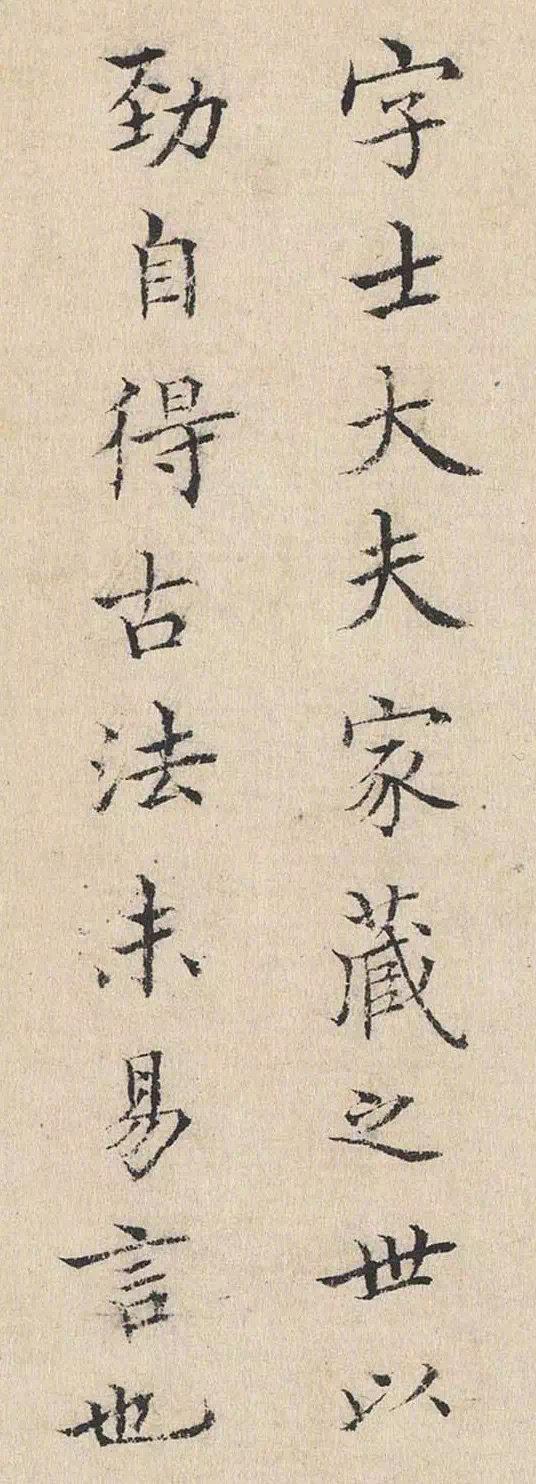 字士大夫家藏之世以
劲自得古法未易言也